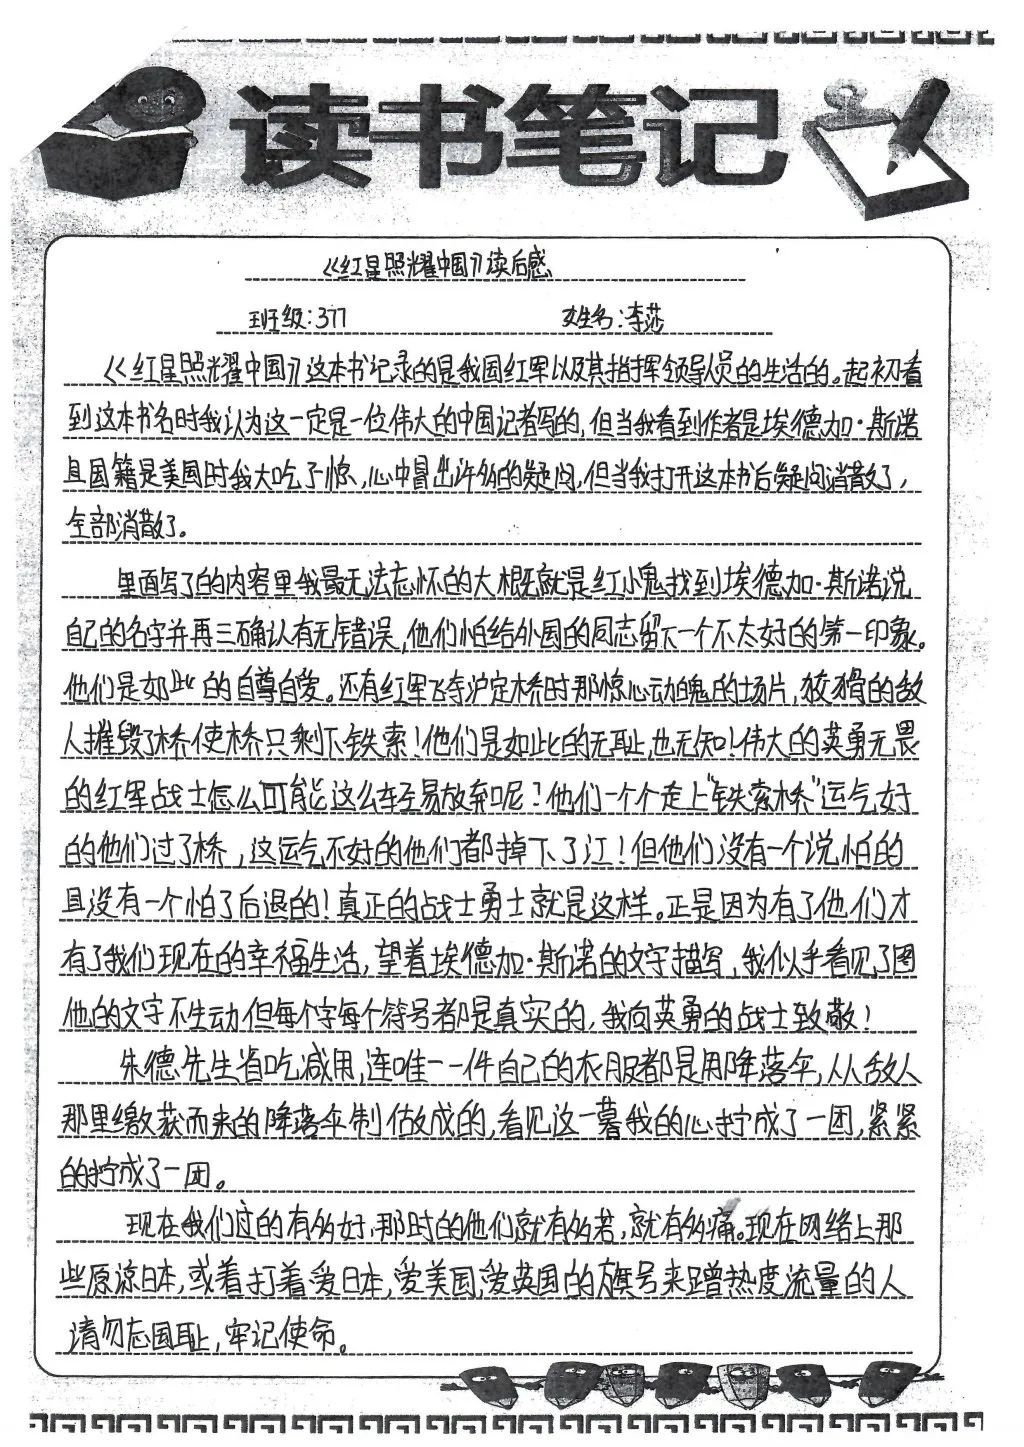 读书笔记
《红星照耀中国》读后感
班级:377 姓名:李莎
《红星照耀中国》这本书记录的是我国红军以及其指挥领导人员的生活的。起初看
到这本书名时我认为这一定是一位伟大的中国记者写的,但当我看到作者是埃德加·斯诺
且国籍是美国时我大吃了惊,心中冒出许多的疑问,但当我打开这本书后疑问消散了,
全部消散了。
里面写了的内容里我最无法忘怀的大概就是红小鬼找到埃德加·斯诺,说
自己的名字并再三确认有无错误,他们怕给外国的同志留下一个不太好的第一印象。
他们是如此的自尊自爱。还有红军飞夺泸定桥时那惊心动魄的场片,狡猾的敌
人摧毁了桥使桥只剩下铁索!他们是如此的无耻也无知!伟大的英勇无畏
的红军战士怎么可能这么轻易放弃呢!他们一个个走上“铁索桥”运气好
的他们过了桥,这运气不好的他们都掉下了江!但他们没有一个说怕的
且没有一个怕了后退的!真正的战士勇士就是这样。正是因为有了他们才
有了我们现在的幸福生活,望着埃德加·斯诺的文字描写,我似乎看见了图
他的文字不生动但每个字每个符号都是真实的,我向英勇的战士致敬!
朱德先生省吃减用,连唯一一件自己的衣服都是用降落伞,从敌人
那里缴获而来的降落伞制做成的,看见这一幕我的心拧成了一团,紧紧
的拧成了一团。
现在我们过的有多好,那时的他们就有多苦,就有多痛。现在网络上那
些原谅日本,或着打着爱日本,爱美国,爱英国的旗号来蹭热度流量的人
请勿忘国耻,牢记使命。